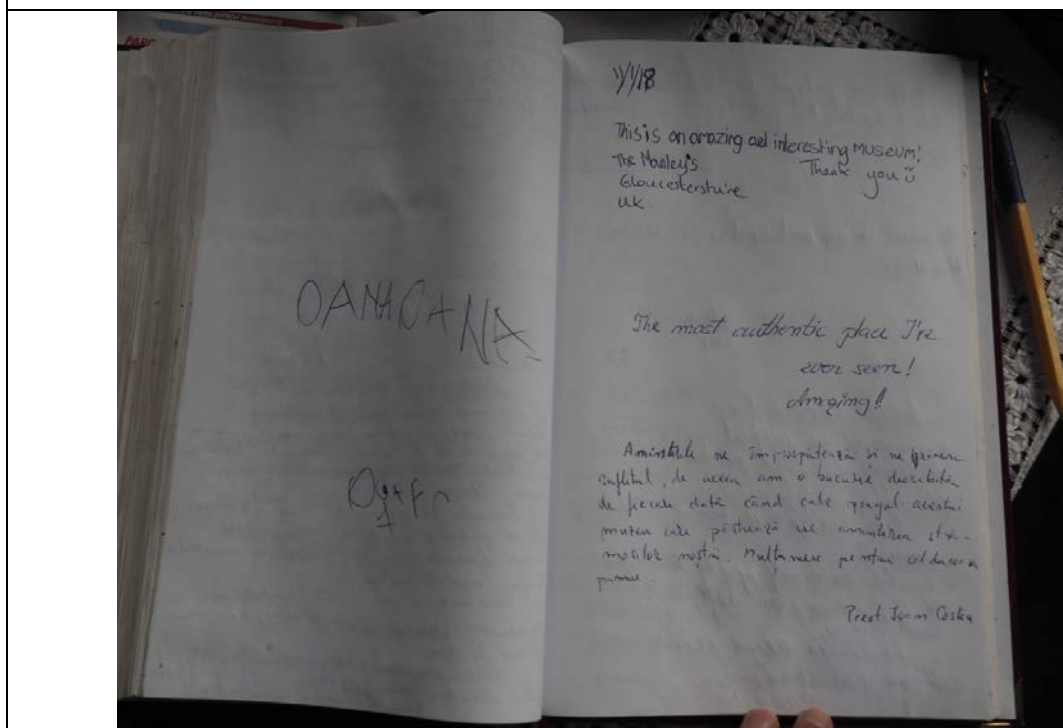 OANA OANA
11/1/18
This is an amazing and interesting MUSEUM!
The Manley's Thank you
Gloucestershire
UK.
The most authentic place I've
ever seen!
Amazing!!
Amintirile ne împrospătează și ne primenesc
sufletul, de aceea am o bucurie deosebită
de fiecare dată când calc pragul acestui
muzeu care păstrează vie amintirea stră-
moșilor noștri. Mulțumesc pentru călduroasa
primire.
Preot Ioan Costea